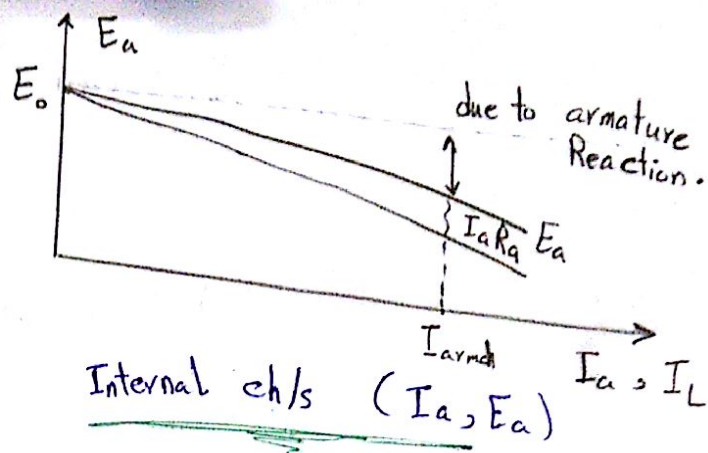 Ea
E₀
due to armature
Reaction.
IaRa
Ea
Iarmch
Ia, IL
Internal ch/s (Ia, Ea)